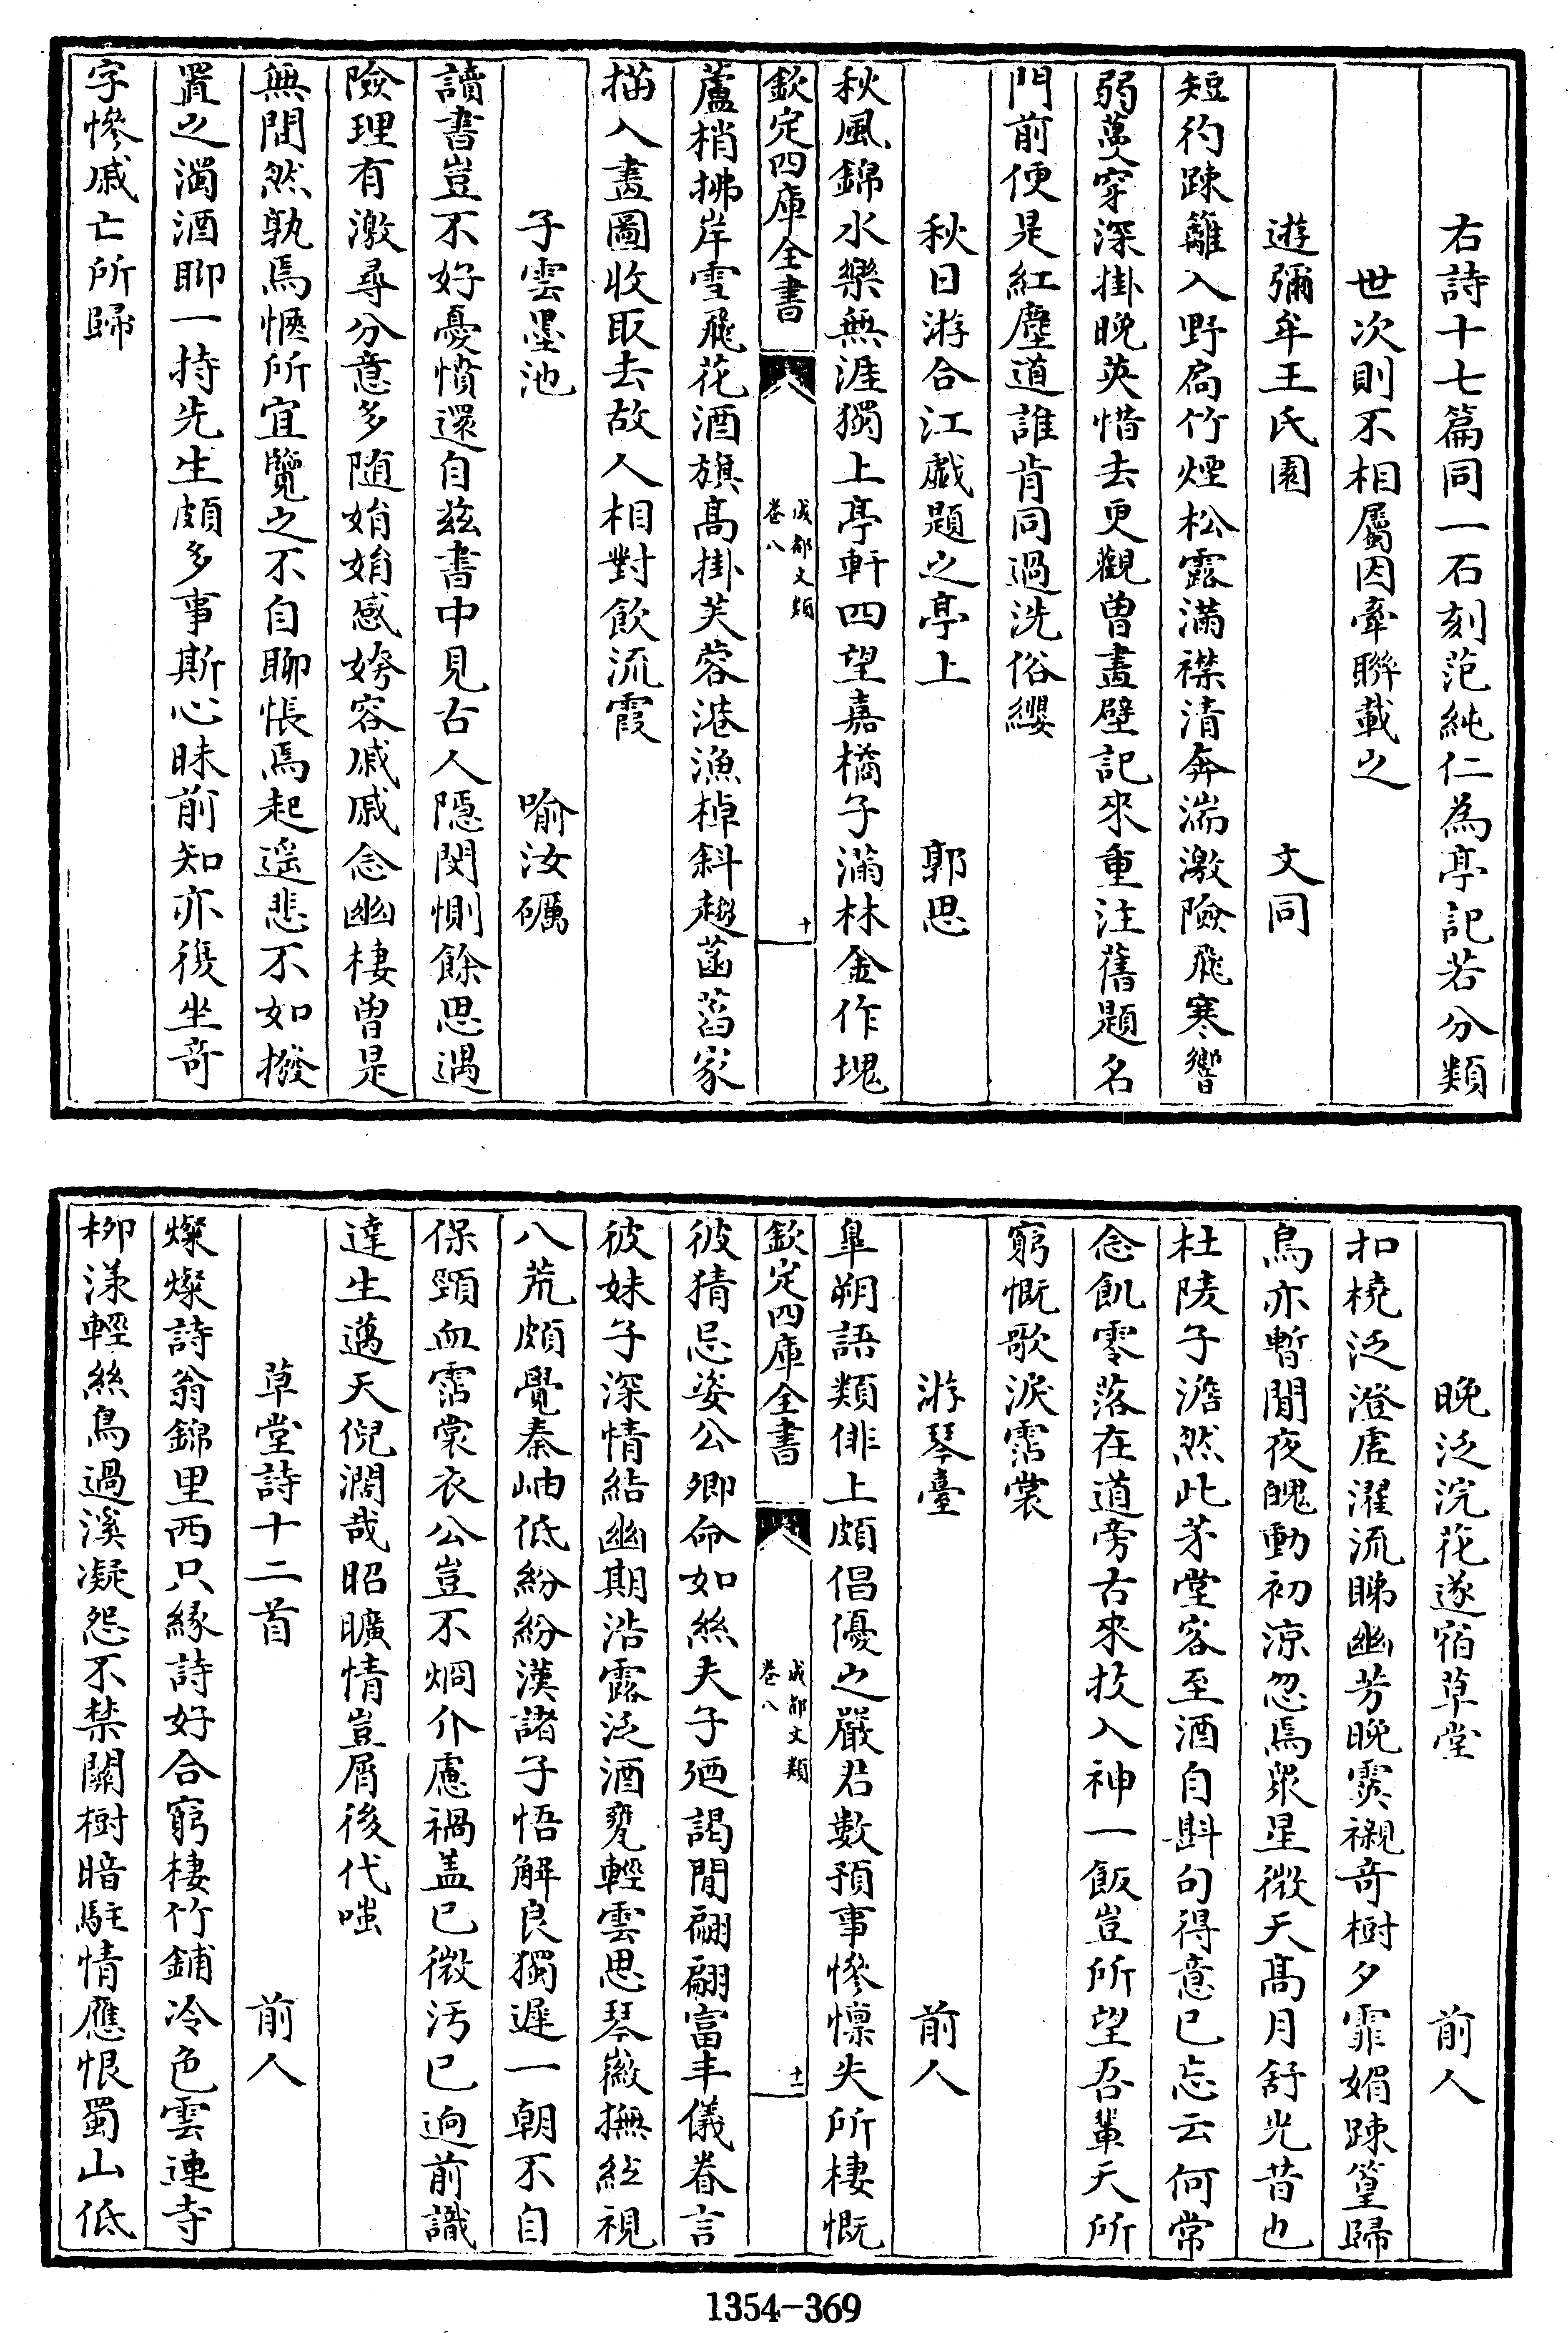 右詩十七篇同一石刻范純仁為亭記若分類
世次則不相屬因牽聯載之
遊彌牟王氏園　文同
短彴踈籬入野扃竹煙松露滿襟清奔湍激險飛寒響
弱蔓穿深掛晚英惜去更觀曽畫壁記來重注舊題名
門前便是紅塵道誰肯同過洗俗纓
秋日游合江戯題之亭上　郭思
秋風錦水樂無涯獨上亭軒四望嘉橘子滿林金作塊
欽定四庫全書　成都文類　卷八　十
蘆梢拂岸雪飛花酒旗髙掛芙蓉港漁棹斜趍菡萏家
描入畫圖收取去故人相對飲流霞
子雲墨池　喻汝礪
讀書豈不好憂憤還自兹書中見古人隱閔惻餘思遇
險理有激尋分意多随娟娟感姱容戚戚念幽棲曽是
無閒然孰焉愜所宜覽之不自聊悵焉起遥悲不如撥
置之濁酒聊一持先生頗多事斯心昧前知亦復坐竒
字慘戚亡所歸
晚泛浣花遂宿草堂　前人
扣橈泛澄虗濯流睇幽芳晚霙襯竒樹夕霏媚踈篁歸
鳥亦暫閒夜魄動初涼忽焉衆星微天髙月舒光昔也
杜陵子澹然此茅堂客至酒自斟句得意已忘云何常
念飢零落在道旁古來技入神一飯豈所望吾軰天所
窮慨歌淚霑裳
游琴臺　前人
臯朔語類俳上頗倡優之嚴君數預事慘懔失所棲慨
欽定四庫全書　成都文類　卷八　十一
彼猜忌姿公卿命如絲夫子廼謁閒翩翩富丰儀眷言
彼姝子深情結幽期浩露泛酒甕輕雲思琴徽撫絃視
八荒頗覺秦岫低紛紛漢諸子悟解良獨遲一朝不自
保頸血霑裳衣公豈不烱介慮禍盖已微汚已逈前識
達生邁天倪濶哉昭曠情豈屑後代嗤
草堂詩十二首　前人
燦燦詩翁錦里西只緣詩好合窮棲竹鋪冷色雲連寺
柳漾輕絲鳥過溪凝怨不禁關樹暗駐情應恨蜀山低
1354-369